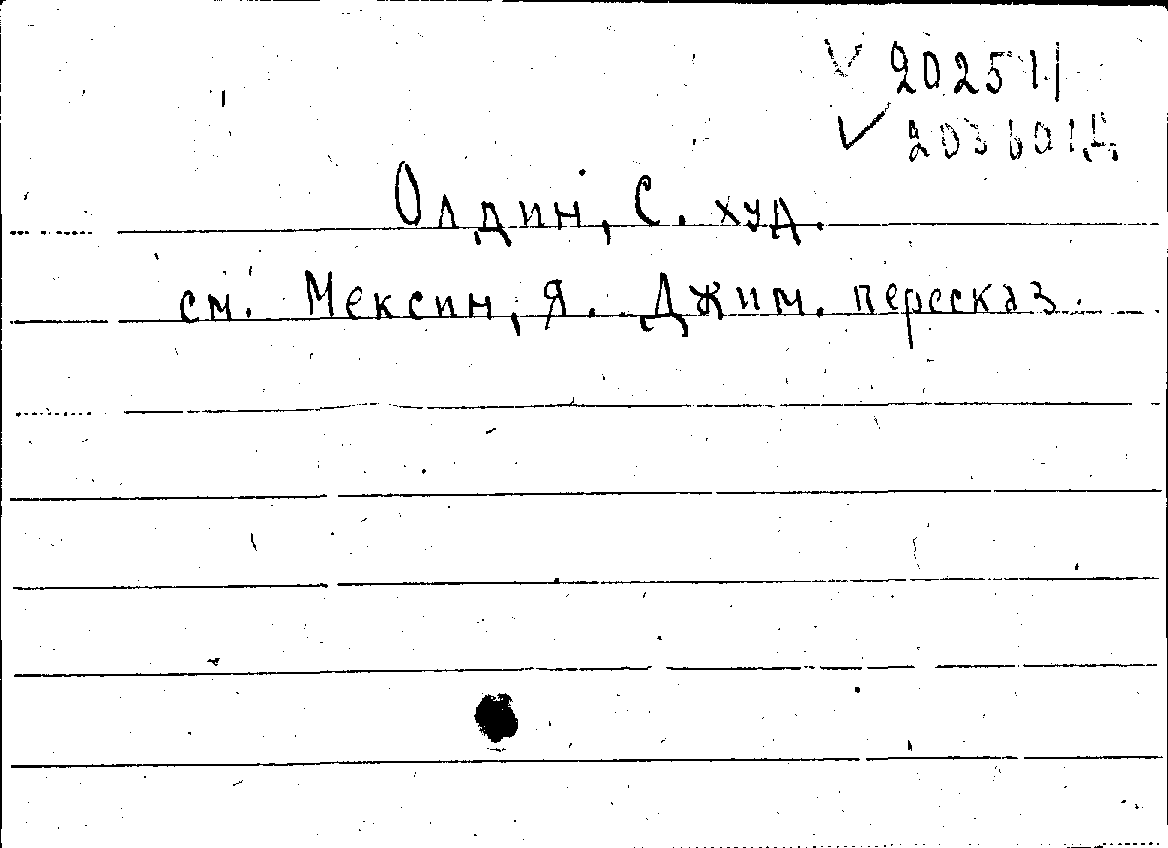 ✓ 202511
✓ 203601Д
Олдин, С. худ.
см. Мексин, Я. Джим. пересказ.